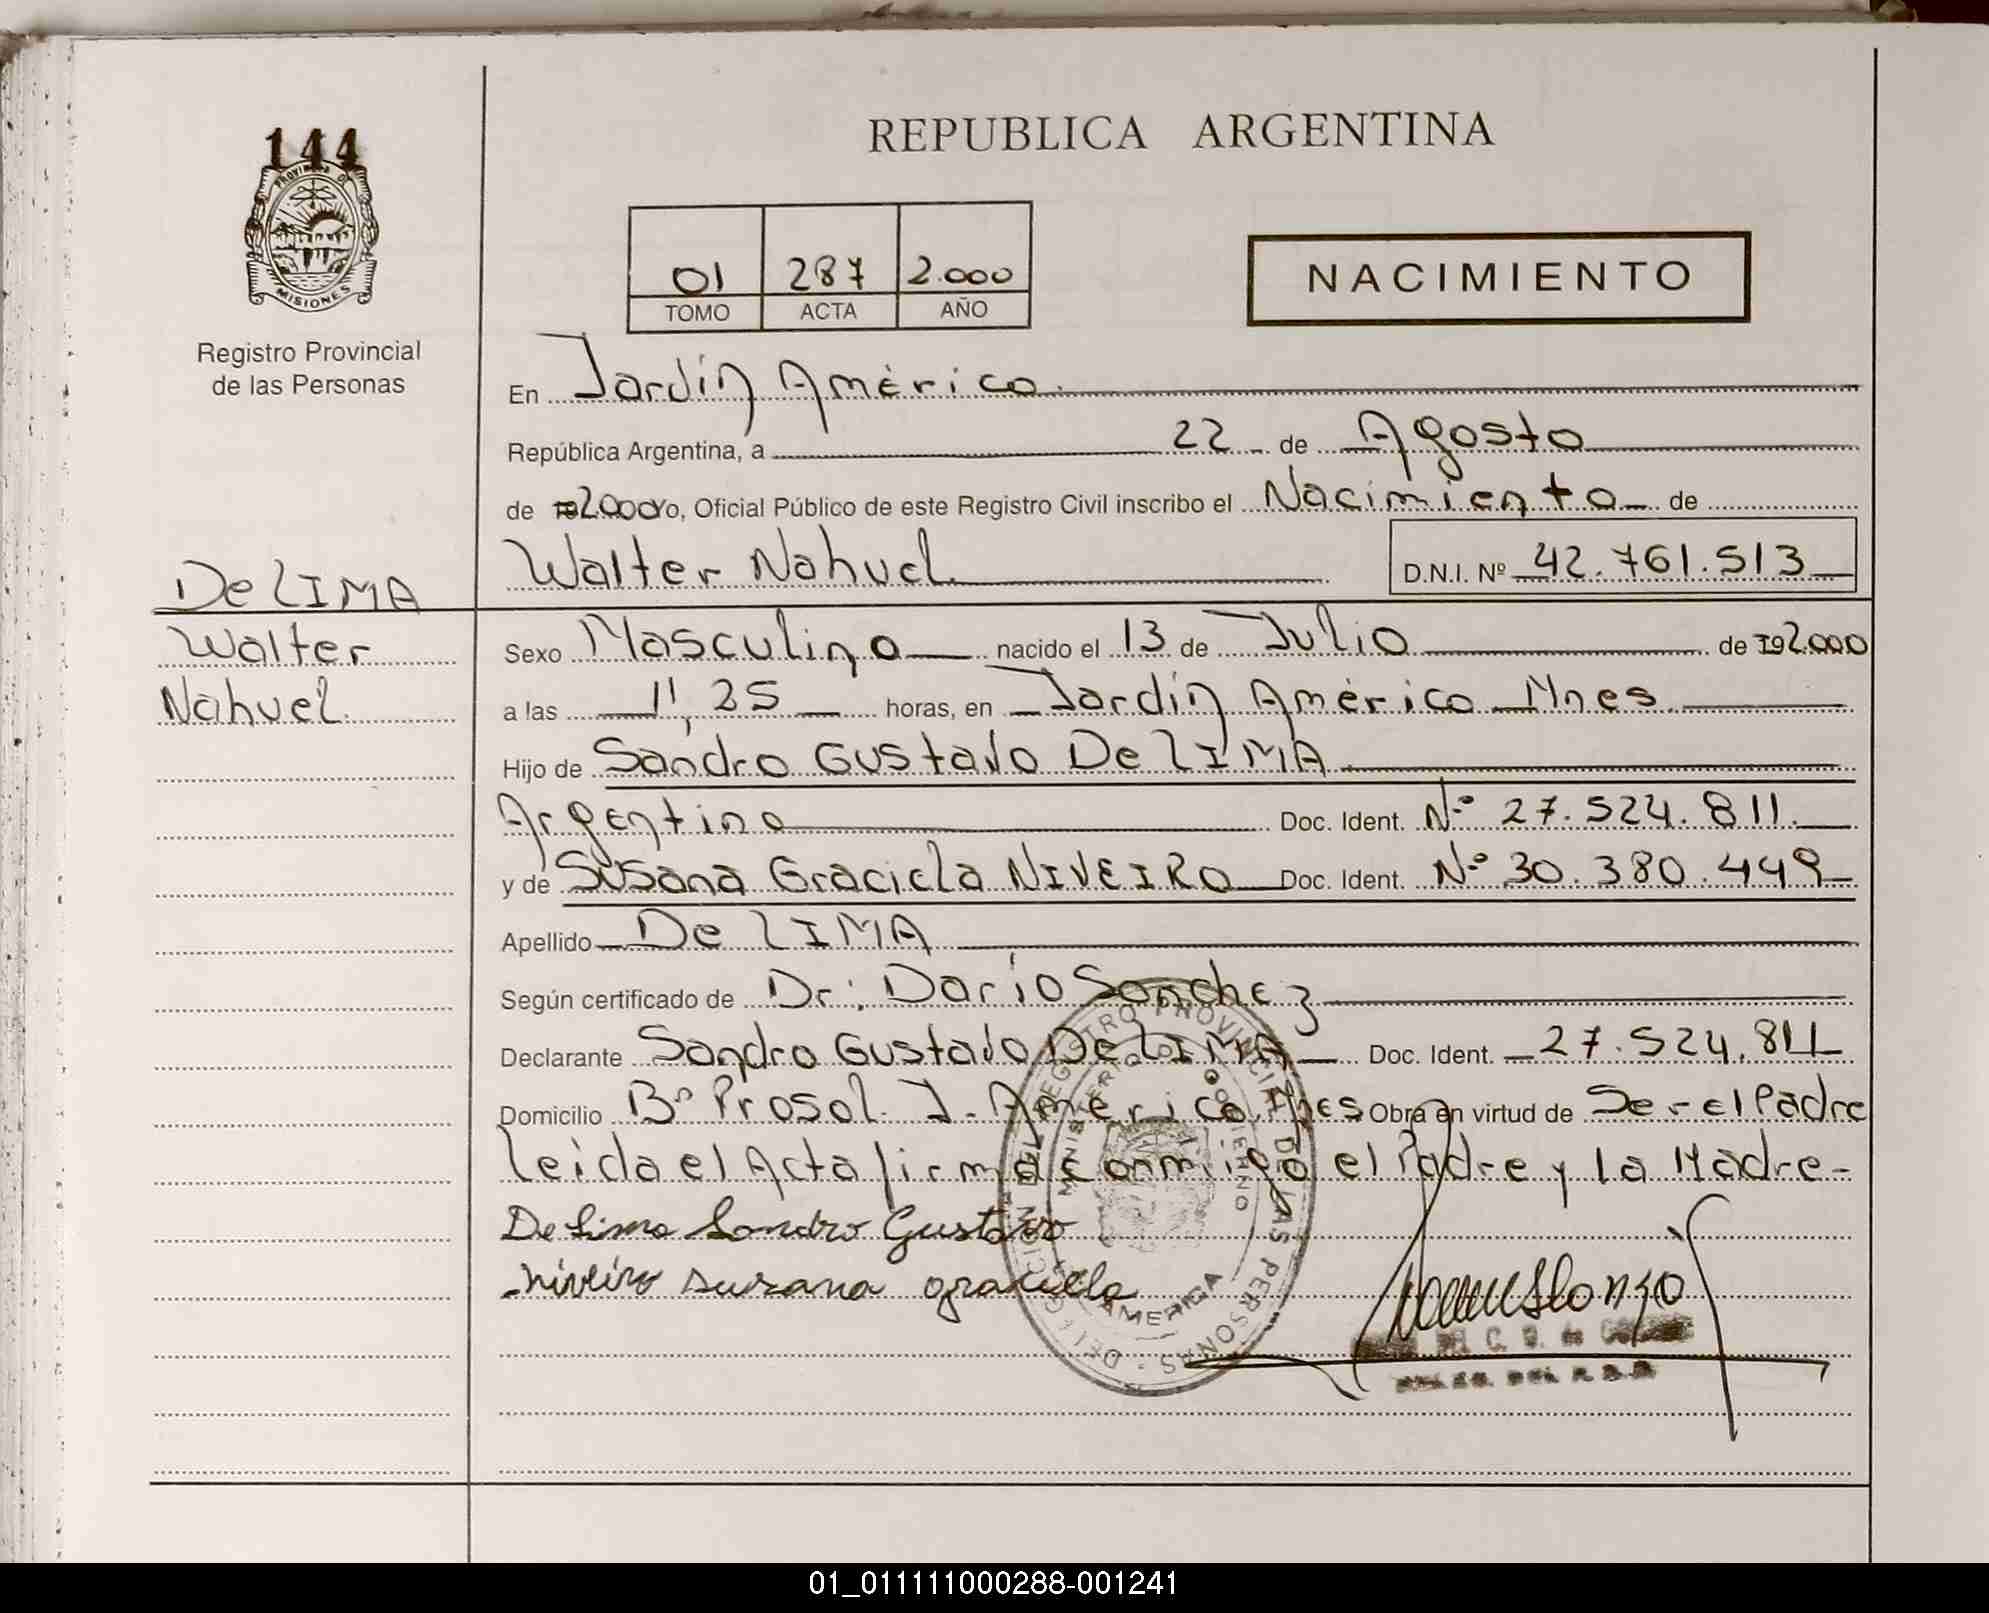 144
PROVINCIA DE
MISIONES
Registro Provincial
de las Personas
REPUBLICA ARGENTINA
01 287 2.000
TOMO ACTA AÑO
NACIMIENTO
En Jardín América
República Argentina, a 22 de Agosto
de 2000 Yo, Oficial Público de este Registro Civil inscribo el Nacimiento de
Walter Nahuel D.N.I. Nº 42.761.513
De LIMA
Walter
Nahuel
Sexo Masculino nacido el 13 de Julio de 192.000
a las 11,25 horas, en Jardín América Mnes
Hijo de Sandro Gustavo De LIMA
Argentino Doc. Ident. Nº 27.524.811.
y de Susana Graciela NIVEIRO Doc. Ident. Nº 30.380.449
Apellido De LIMA
Según certificado de Dr: Darío Sanchez
Declarante Sandro Gustavo De LIMA Doc. Ident. 27.524.811
Domicilio Bº Prosol. J. América Mnes Obra en virtud de Ser el Padre
leida el Acta firma conmigo el Padre y la Madre-
De Lima Sandro Gustavo
Niveiro Susana Graciela
DELEGACION DEL REGISTRO PROVINCIAL DE LAS PERSONAS
MINISTERIO DE GOBIERNO
AMERICA
01_011111000288-001241